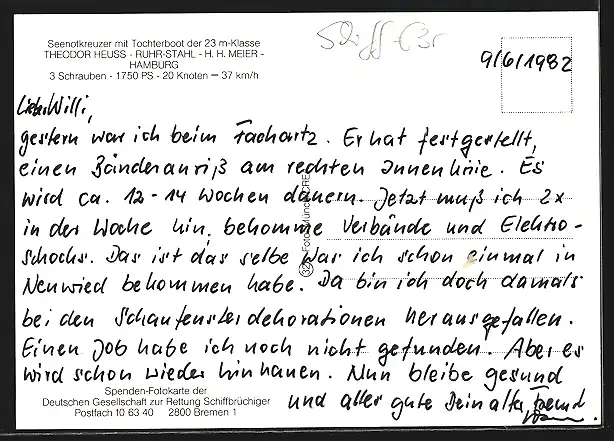 Seenotkreuzer mit Tochterboot der 23 m-Klasse
THEODOR HEUSS - RUHR-STAHL - H. H. MEIER -
HAMBURG
3 Schrauben - 1750 PS - 20 Knoten = 37 km/h
Schiff-Br
9/6/1982
Lieber Willi,
gestern war ich beim Facharzt. Er hat festgestellt,
einen Bänderanriß am rechten Innenknie. Es
wird ca. 12-14 Wochen dauern. Jetzt muß ich 2x
in der Woche hin, bekomme Verbände und Elektro-
schocks. Das ist das selbe was ich schon einmal in
Neuwied bekommen habe. Da bin ich doch damals
bei den Schaufensterdekorationen herausgefallen.
Einen Job habe ich noch nicht gefunden. Aber es
wird schon wieder hinhauen. Nun bleibe gesund
und alles gute Dein alter Freund
Spenden-Fotokarte der
Deutschen Gesellschaft zur Rettung Schiffbrüchiger
Postfach 10 63 40 2800 Bremen 1